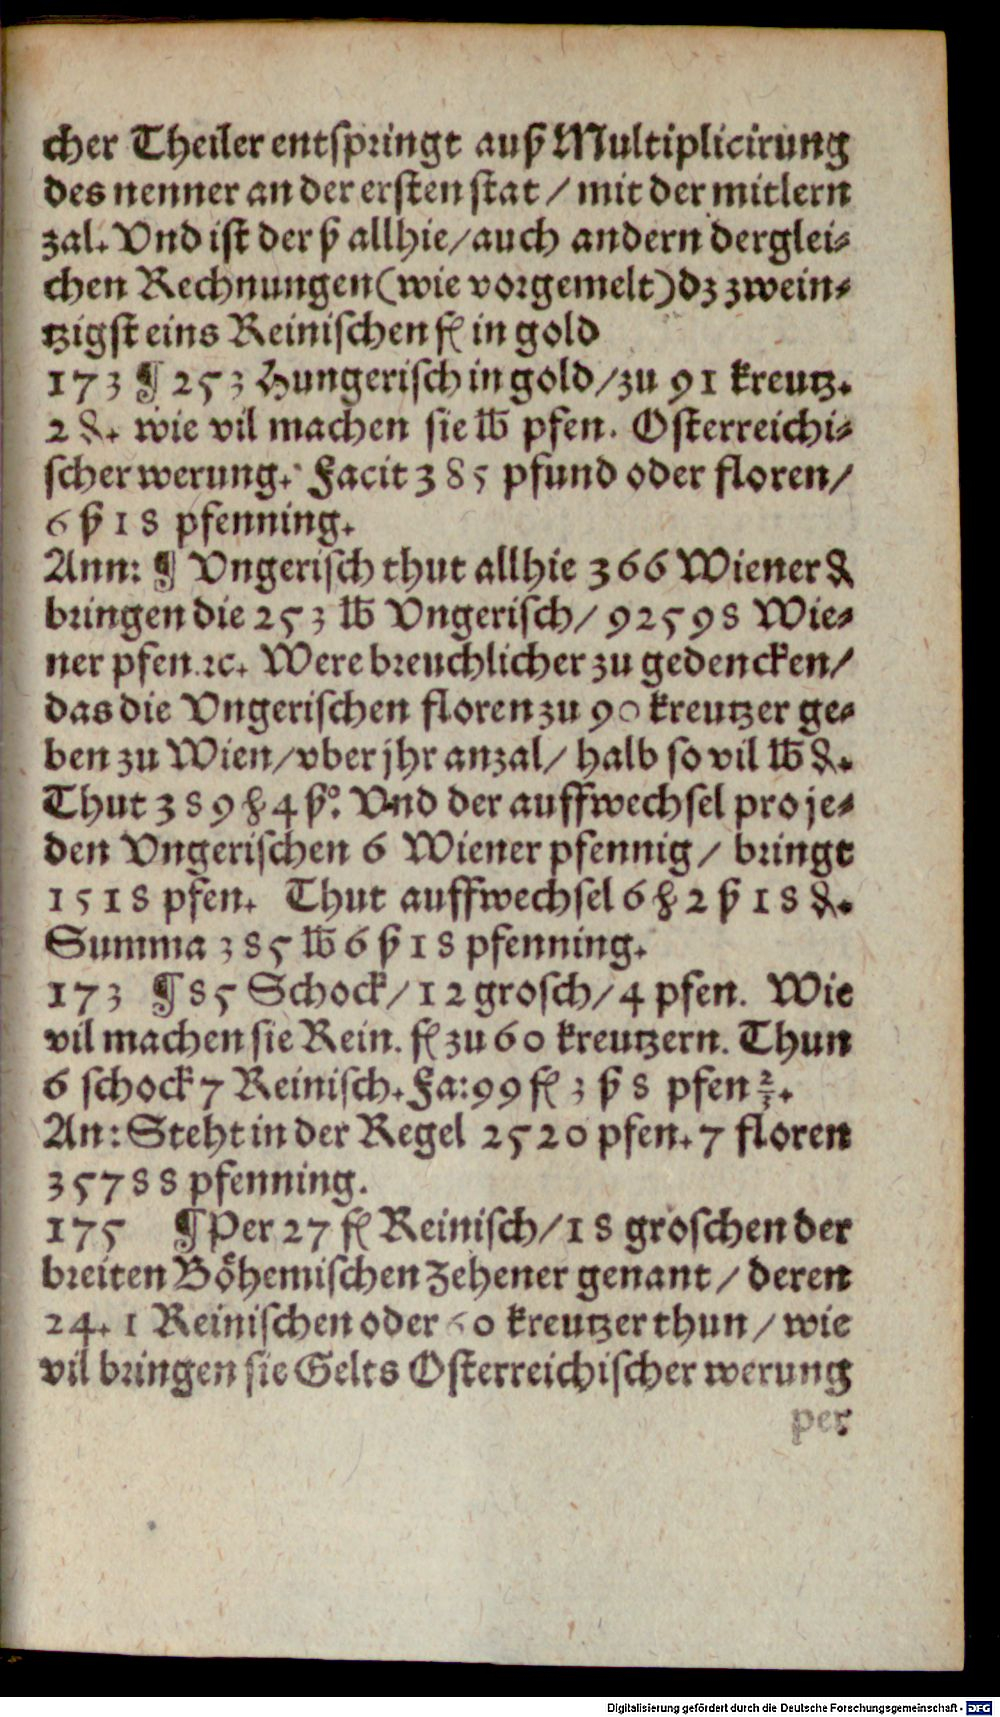 cher Theiler entspringt auß Multiplicirung
des nenner an der ersten stat / mit der mitlern
zal. Vnd ist der ß allhie / auch andern derglei⸗
chen Rechnungen (wie vorgemelt) dz zwein⸗
tzigst eins Reinischen fl in gold
173 ¶ 253 Hungerisch in gold / zu 91 kreutz.
2 ₰. wie vil machen sie ℔ pfen. Osterreichi⸗
scher werung. Facit 385 pfund oder floren /
6 ß 18 pfenning.
Ann: ¶ Vngerisch thut allhie 366 Wiener ₰
bringen die 253 ℔ Vngerisch / 92598 Wie⸗
ner pfen. ꝛc. Were breuchlicher zu gedencken /
das die Vngerischen floren zu 90 kreutzer ge⸗
ben zu Wien / vber jhr anzal / halb so vil ℔ ₰.
Thut 389 ℔ 4 ß. Vnd der auffwechsel pro je⸗
den Vngerischen 6 Wiener pfennig / bringt
1518 pfen. Thut auffwechsel 6 ℔ 2 ß 18 ₰.
Summa 385 ℔ 6 ß 18 pfenning.
173 ¶ 85 Schock / 12 grosch / 4 pfen. Wie
vil machen sie Rein. fl zu 60 kreutzern. Thun
6 schock 7 Reinisch. Fa: 99 fl 3 ß 8 pfen ⅔.
An: Steht in der Regel 2520 pfen. 7 floren
35788 pfenning.
175 ¶ Per 27 fl Reinisch / 18 groschen der
breiten Böhemischen Zehener genant / deren
24. 1 Reinischen oder 60 kreutzer thun / wie
vil bringen sie Gelts Osterreichischer werung
per
Digitalisierung gefördert durch die Deutsche Forschungsgemeinschaft - DFG